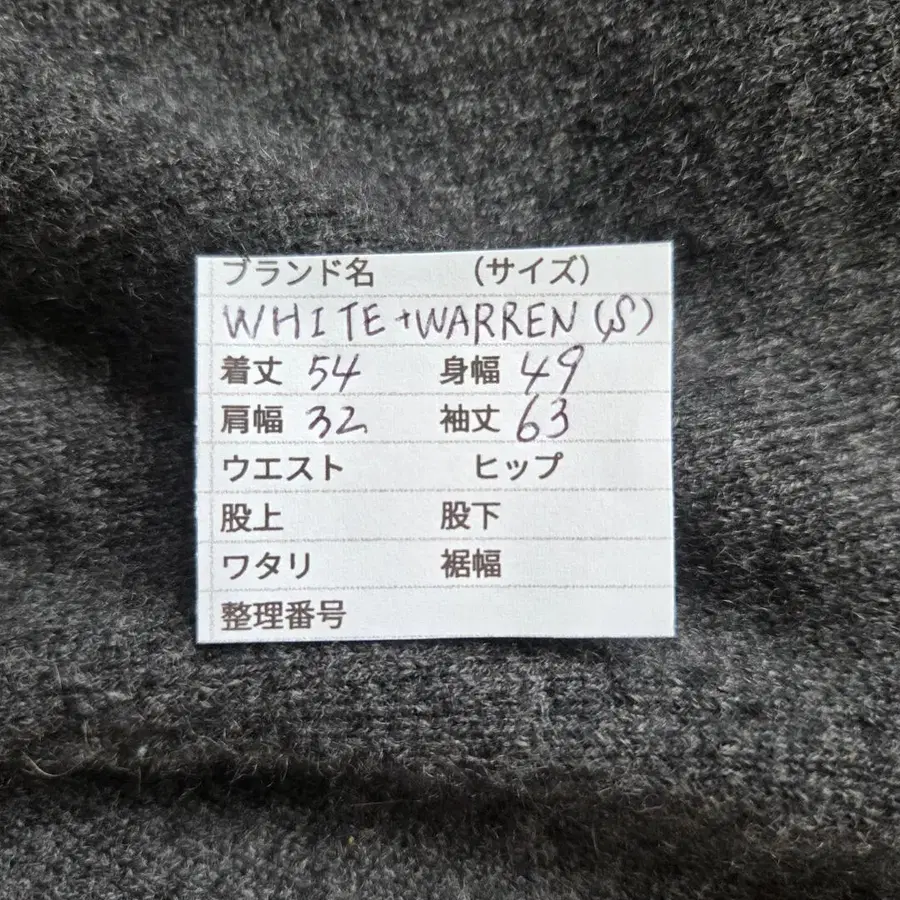 ブランド名 （サイズ）
WHITE+WARREN (S)
着丈 54 身幅 49
肩幅 32 袖丈 63
ウエスト ヒップ
股上 股下
ワタリ 裾幅
整理番号